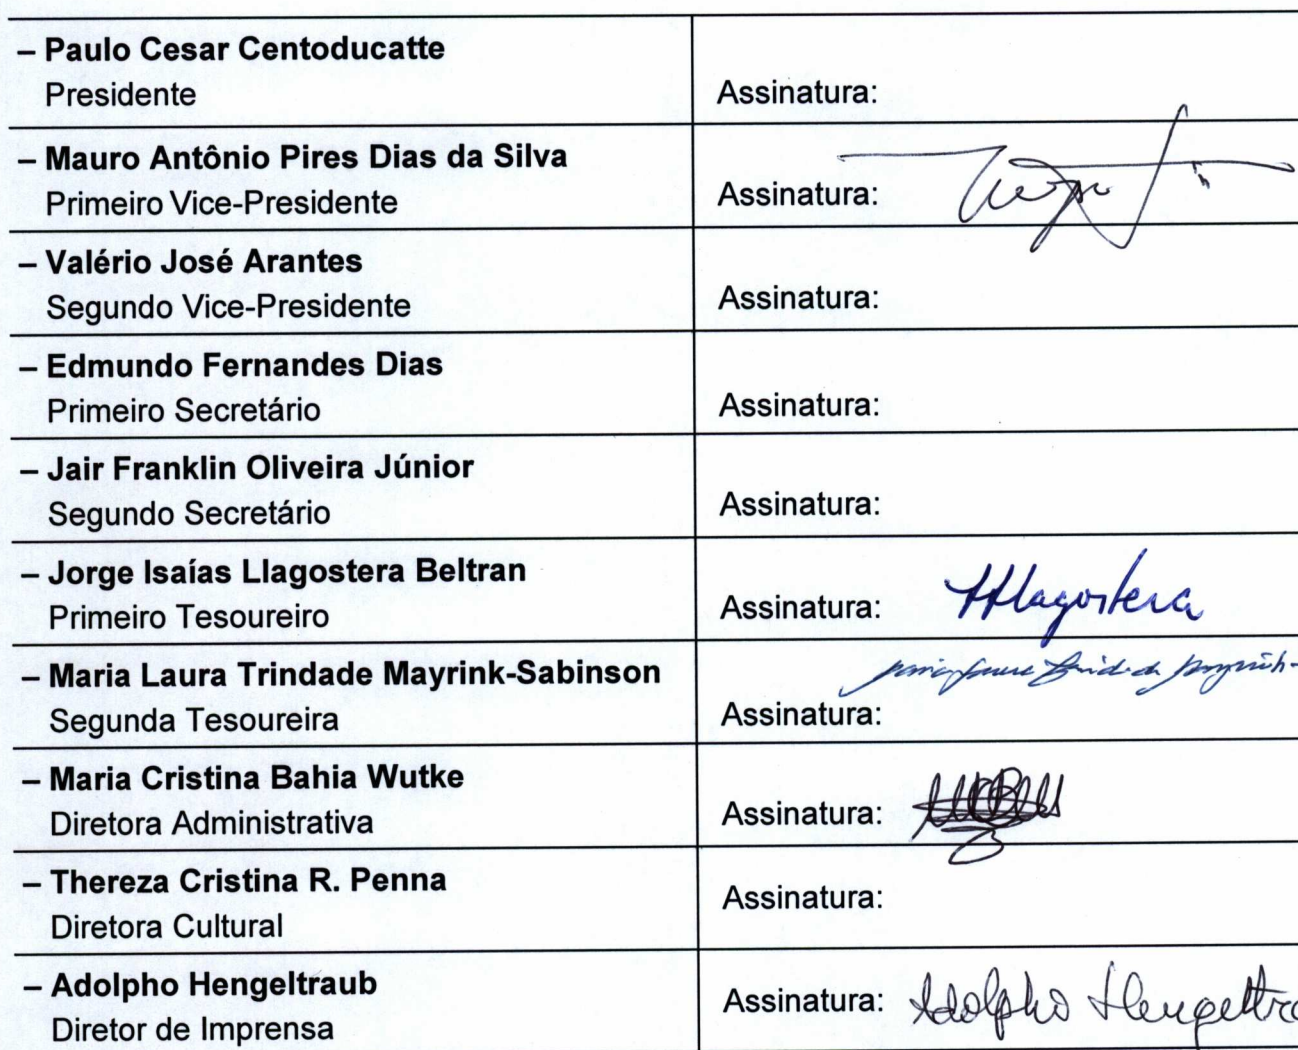 – Paulo Cesar Centoducatte
Presidente
Assinatura:
– Mauro Antônio Pires Dias da Silva
Primeiro Vice-Presidente
Assinatura:
– Valério José Arantes
Segundo Vice-Presidente
Assinatura:
– Edmundo Fernandes Dias
Primeiro Secretário
Assinatura:
– Jair Franklin Oliveira Júnior
Segundo Secretário
Assinatura:
– Jorge Isaías Llagostera Beltran
Primeiro Tesoureiro
Assinatura: Llagostera
– Maria Laura Trindade Mayrink-Sabinson
Segunda Tesoureira
Maria Laura Trindade Mayrink-
Assinatura:
– Maria Cristina Bahia Wutke
Diretora Administrativa
Assinatura:
– Thereza Cristina R. Penna
Diretora Cultural
Assinatura:
– Adolpho Hengeltraub
Diretor de Imprensa
Assinatura: Adolpho Hengeltra